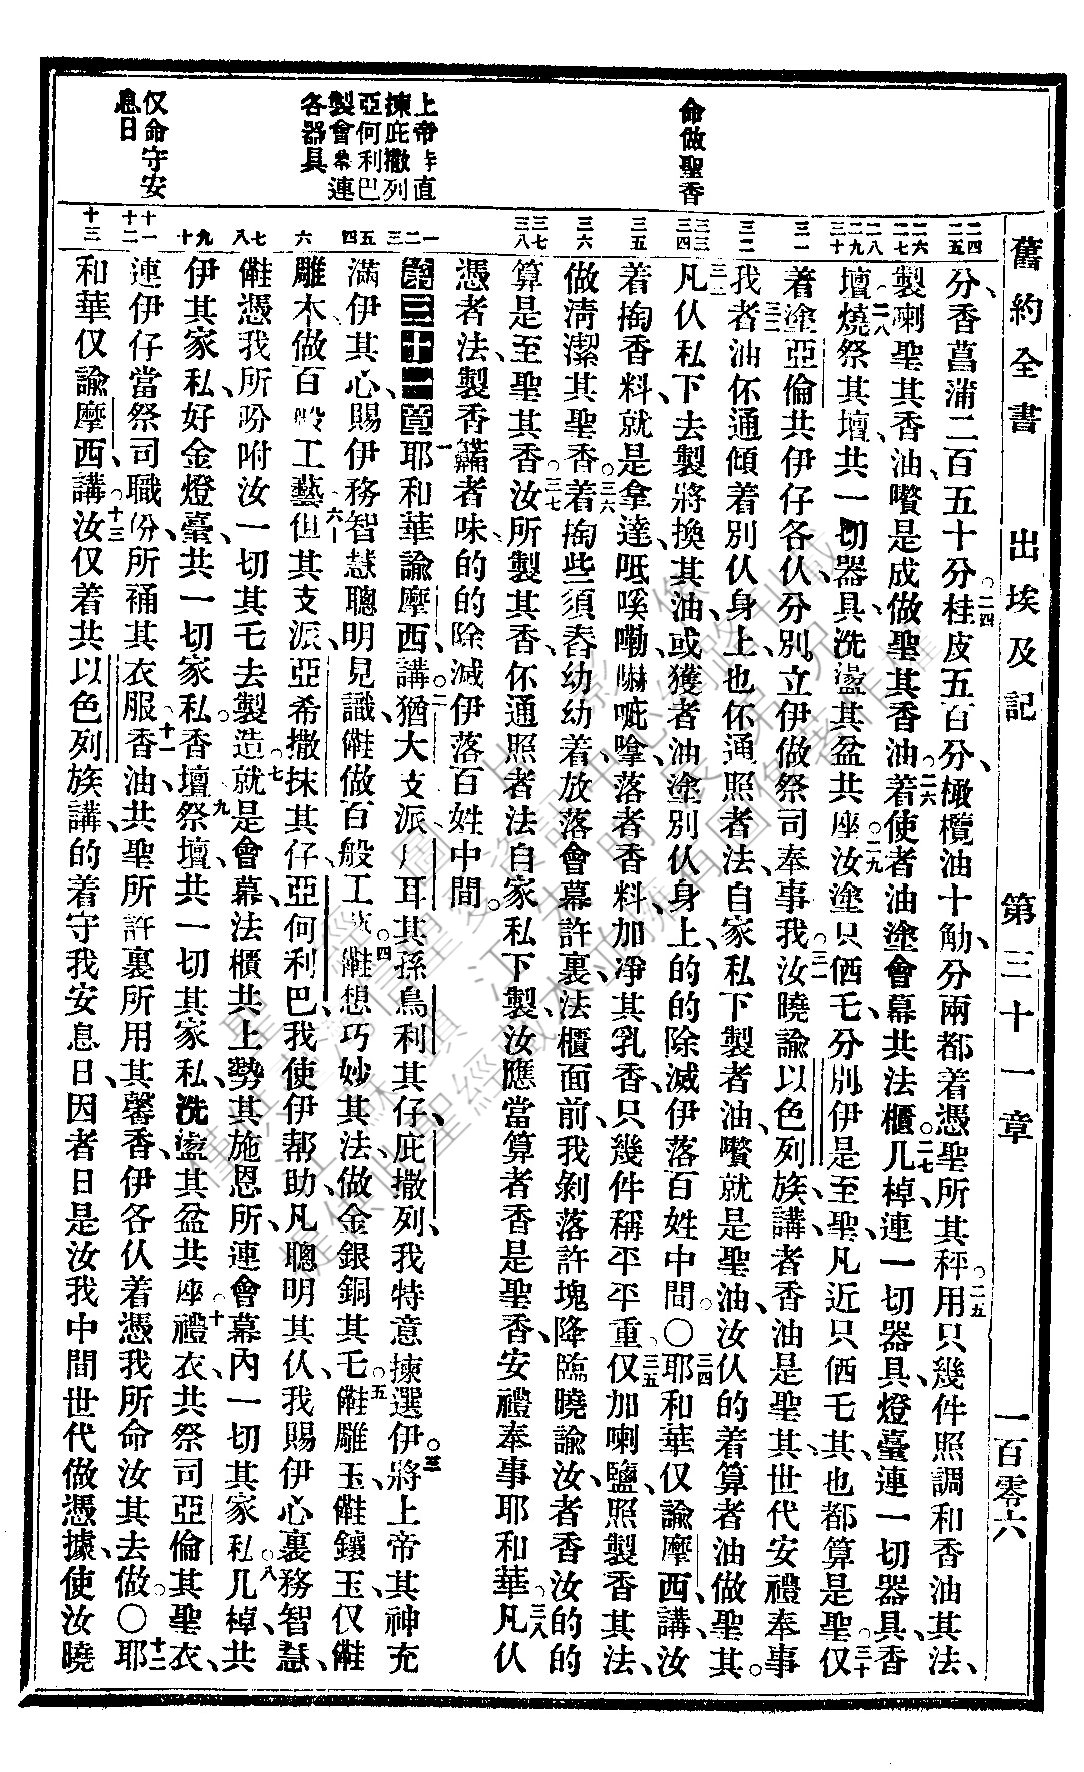 舊約全書 出埃及記 第三十一章 一百零六
命做聖香
上帝 直
揀庇撒列
亞何利巴
製會幕連
各器具
仅命守安
息日
二四 二五
二六 二七
二八 二九 三十
三一
三二
三三 三四
三五
三六
三七 三八
一 二 三
五 四
六
七 八
九 十
十一 十二
十三
分、香菖蒲二百五十分、二四桂皮五百分、橄欖油十觔、分兩都着憑聖所其秤。二五用只幾件照調和香油其法、
製喇聖其香油、嚽是成做聖其香油。二六着使者油塗會幕共法櫃。二七几棹連一切器具、燈臺連一切器具、香
壇、二八燒祭其壇、共一切器具、洗盪其盆共座。二九汝塗只倘乇分別伊是至聖、凡近只倘乇其也都算是聖。三十仅
着塗亞倫共伊仔各仈、分別立伊做祭司奉事我。三一汝曉諭以色列族講、者香油是聖其、世代安禮奉事
我。三二者油伓通傾着別仈身上、也伓通照者法、自家私下製者油、嚽就是聖油、汝仈的着算者油做聖其。
三三凡仈私下去製將換其油、或獲者油塗別仈身上、的的除滅伊落百姓中間。〇三四耶和華仅諭摩西講、汝
着掏香料、就是拿達、呧嗘嘞、嚇呃拿、落者香料、加凈其乳香、只幾件稱平平重。三五仅加喇鹽、照製香其法、
做淸潔其聖香。三六着掏些須舂幼幼、着放落會幕許裏、法櫃面前、我剝落許塊降臨曉諭汝、者香汝的的
算是至聖其香。三七汝所製其香、伓通照者法自家私下製、汝應當算者香是聖香、安禮奉事耶和華。三八凡仈
憑者法、製香鼊者味的的除滅伊落百姓中間。
第三十一章 一耶和華諭摩西講、二猶大支派戶耳其孫、鳥利其仔、庇撒列、我特意揀選伊。三將上帝其神充
滿伊其心、賜伊務智慧聰明見識、做百般工藝。四想巧妙其法、做金銀銅其乇。五雕玉、鑲玉、仅
雕木、做百般工藝。六但其支派、亞希撒抹其仔、亞何利巴、我使伊帮助、凡聰明其仈、我賜伊心裏務智慧、
憑我所吩咐汝一切其乇去製造。七就是會幕、法櫃、共上勢其施恩所、連會幕內一切其家私。八几棹、共
伊其家私、好金燈臺、共一切家私、香壇、九祭壇、共一切其家私、洗盪其盆共座、十禮衣、共祭司亞倫其聖衣、
連伊仔當祭司職分所補其衣服。十一香油、共聖所許裏所用其馨香、伊各仈着憑我所命汝其去做。〇十二耶
和華仅諭摩西講、十三汝仅着共以色列族講、的着守我安息日、因者日是汝我中間世代做憑據、使汝曉